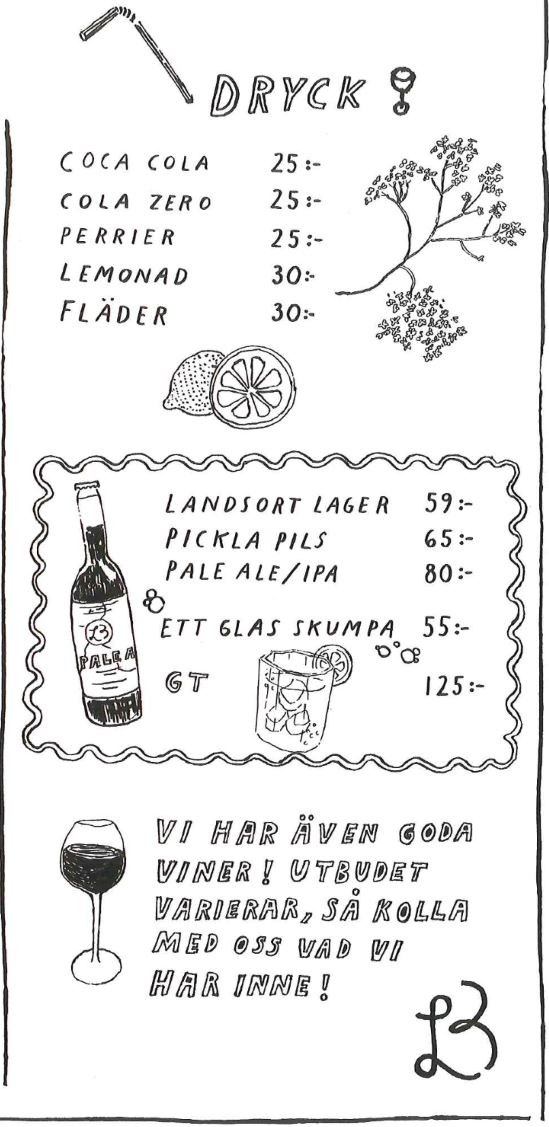 DRYCK!
COCA COLA 25:-
COLA ZERO 25:-
PERRIER 25:-
LEMONAD 30:-
FLÄDER 30:-
LANDSORT LAGER 59:-
PICKLA PILS 65:-
PALE ALE/IPA 80:-
ETT GLAS SKUMPA 55:-
GT 125:-
LB
PALE A
VI HAR ÄVEN GODA
VINER! UTBUDET
VARIERAR, SÅ KOLLA
MED OSS VAD VI
HAR INNE!
LB